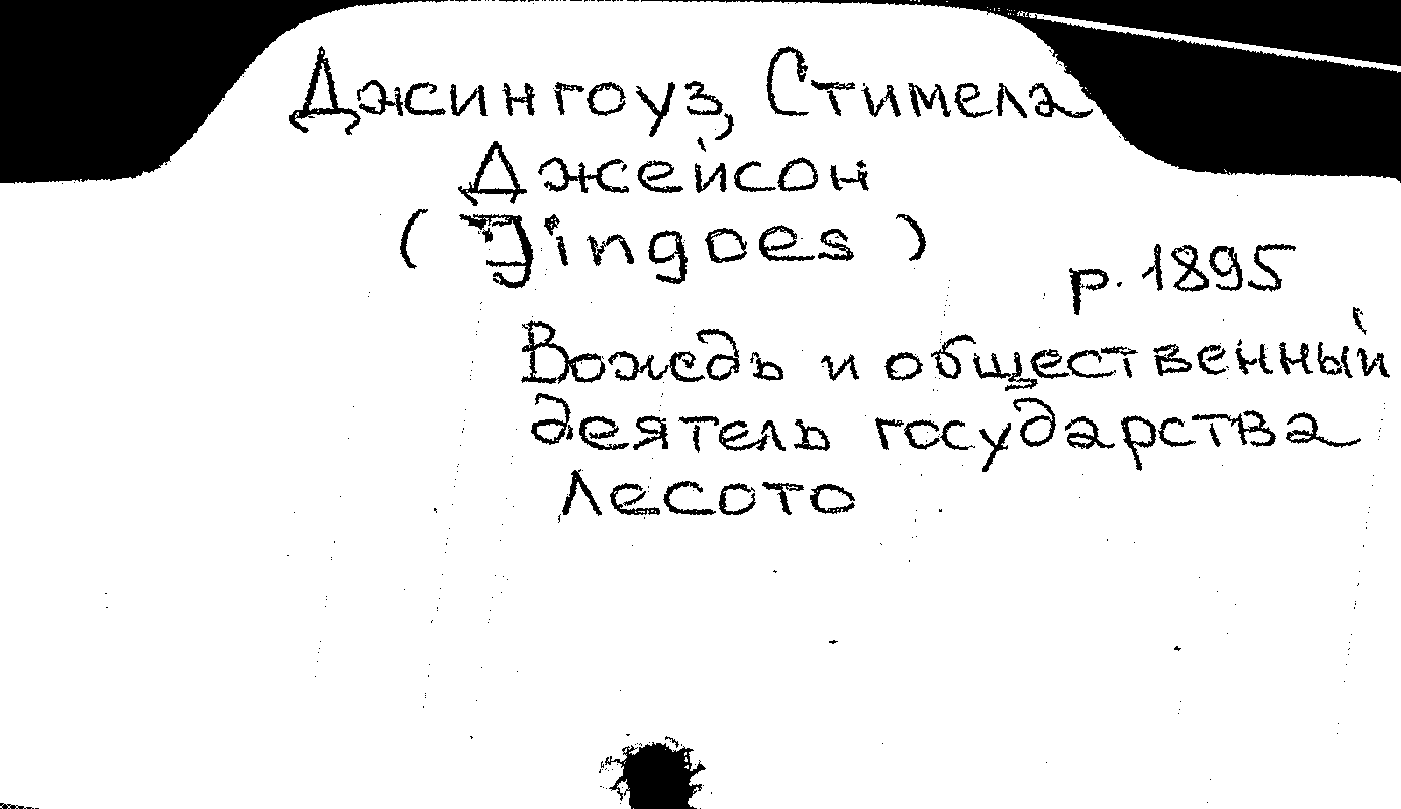 Джингоуз, Стимела
Джейсон
(Jingoes)
р. 1895
Вождь и общественный
деятель государства
Лесото